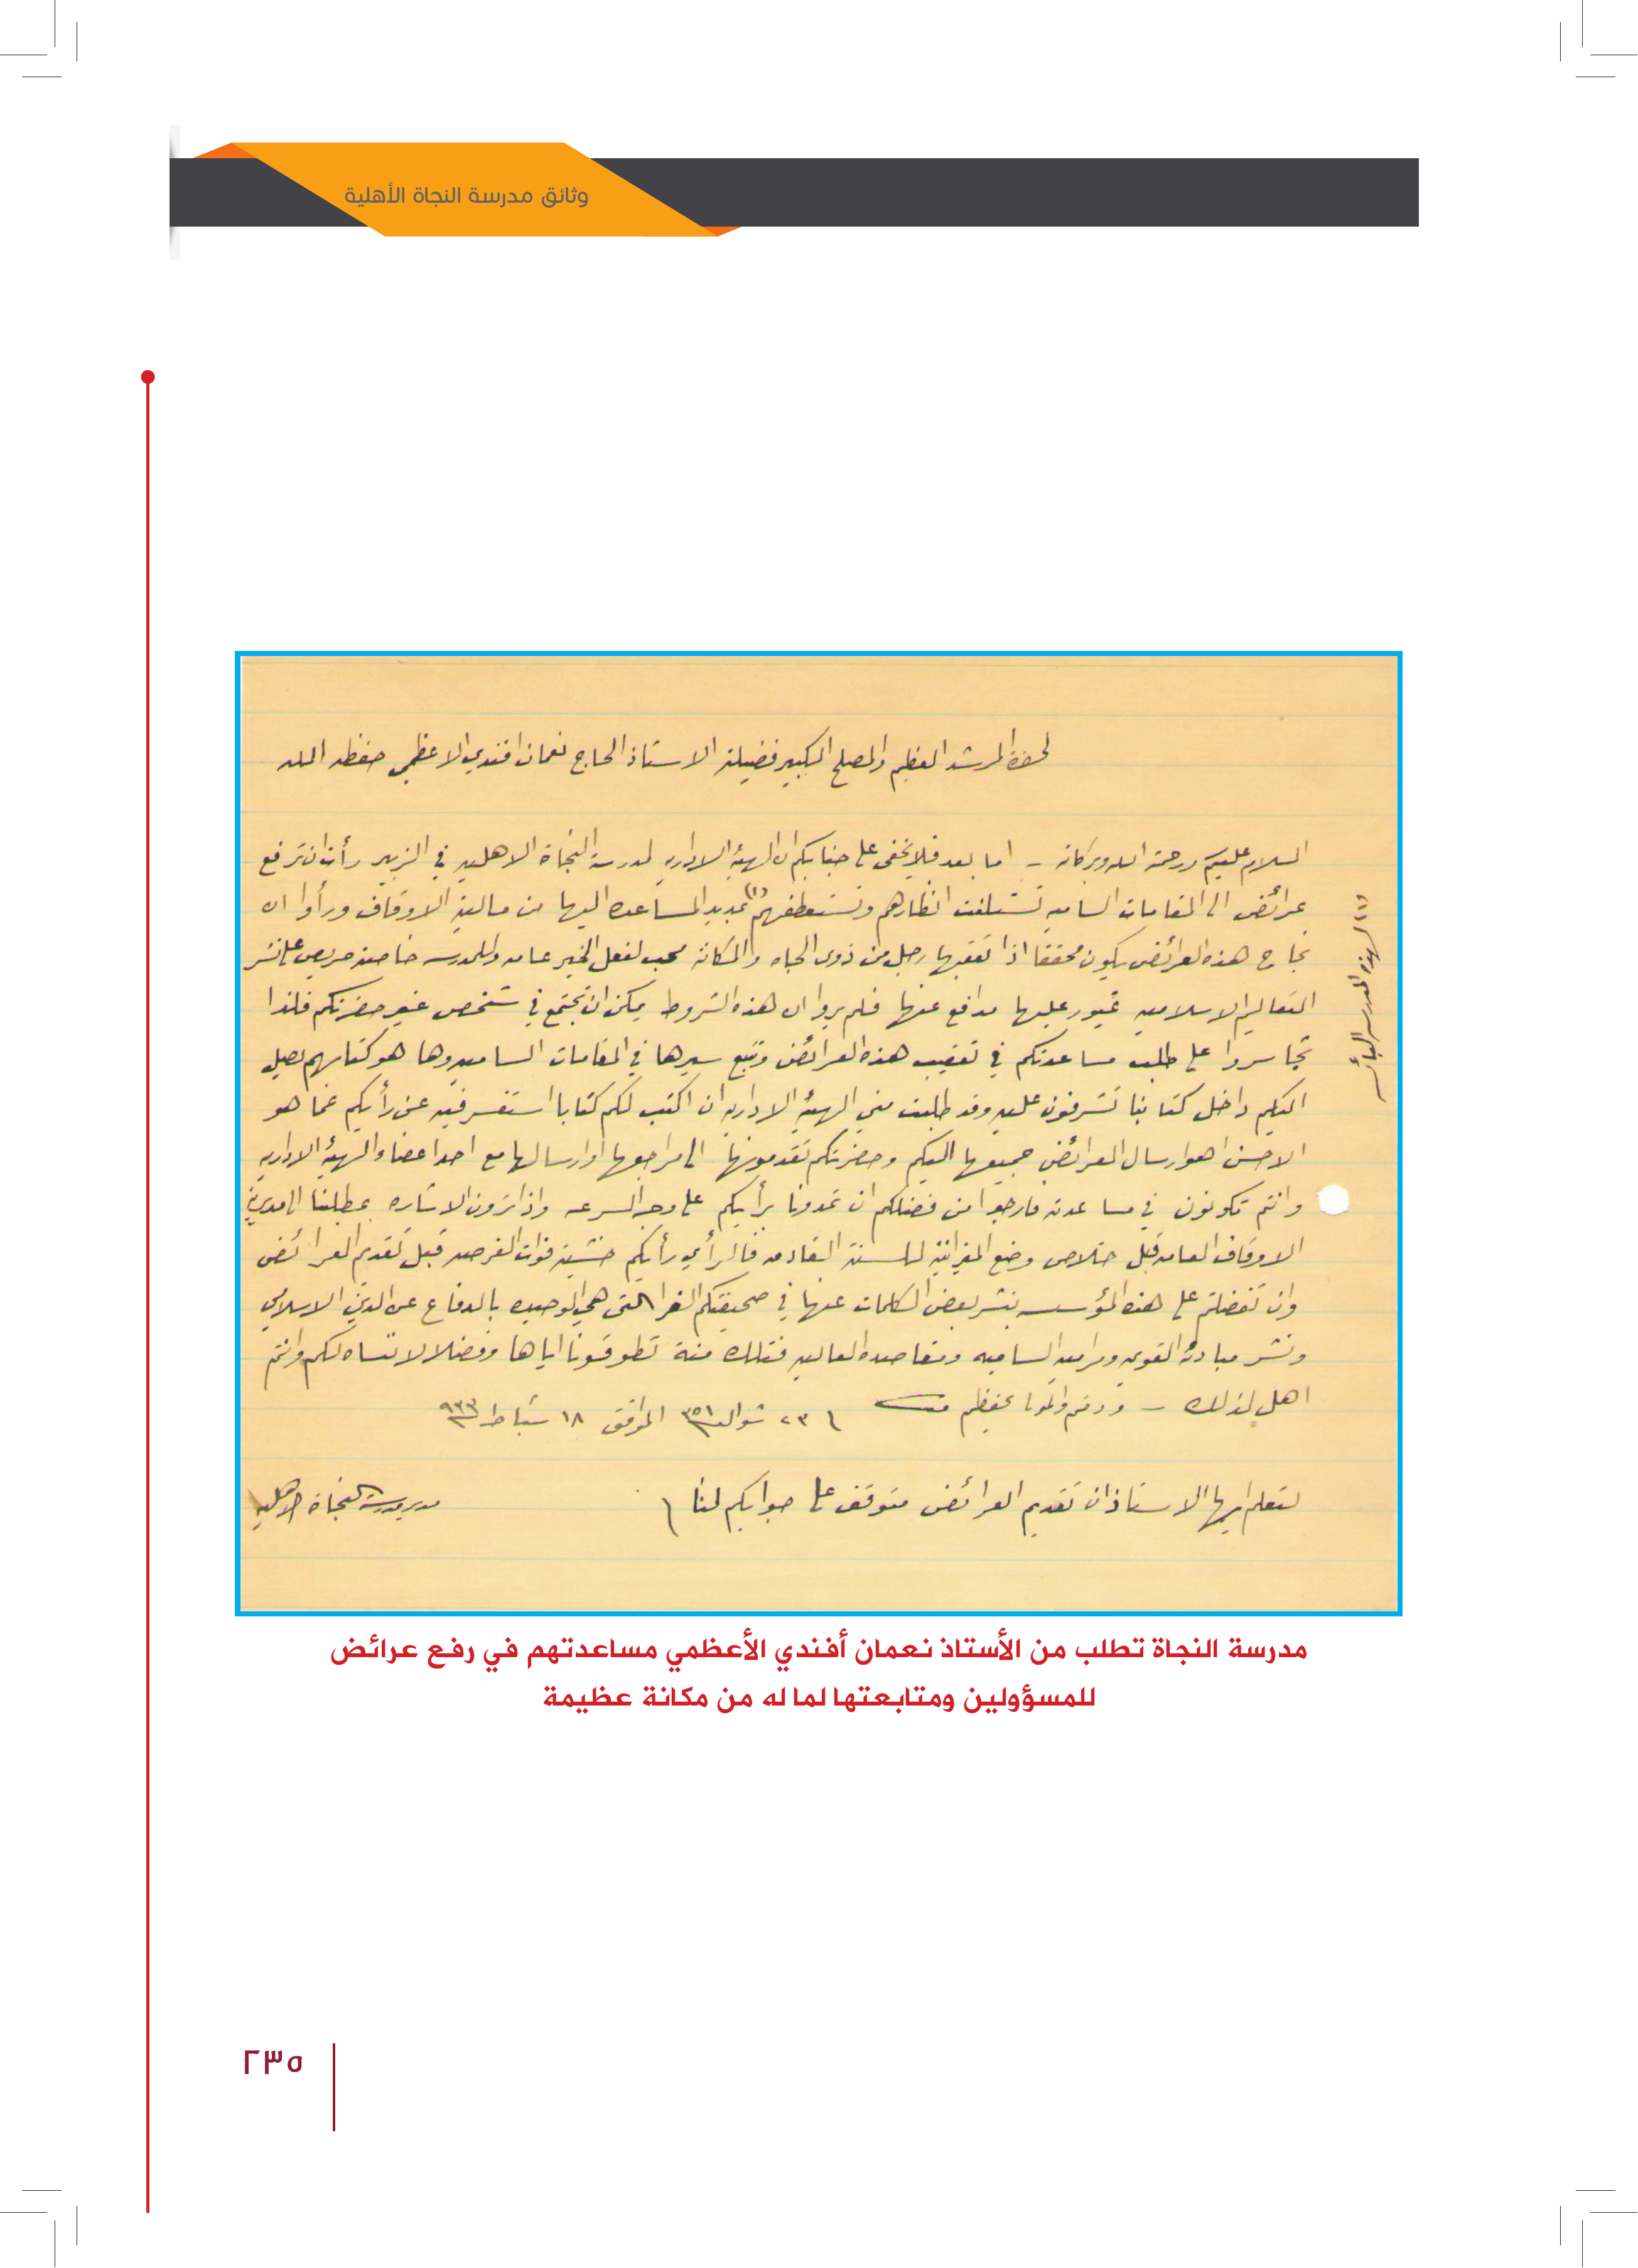 وثائق مدرسة النجاة الأهلية
لحضرة المرشد العظيم والمصلح الكبير فضيلة الاستاذ الحاج نعمان افندي الاعظمي حفظه الله
السلام عليكم ورحمة الله وبركاته – اما بعد فلا يخفى على جنابكم ان الهيئة الاداريه لمدرسة النجاة الاهليه في الزبير رأت ان ترفع
عرائض الى المقامات الساميه تستلفت انظارهم وتستعطفهم (١) بمديد المساعده اليها من مالية الاوقاف ورأوا ان
نجاح هذه العرائض يكون محققا اذا تعقبها رجل من ذوى الجاه والمكانة محب لفعل الخير عامه وللمدرسه خاصة حريص على نشر
التعاليم الاسلاميه غيور عليها مدافع عنها فلم يروا ان هذه الشروط يمكن ان تجتمع في شخص غير حضرتكم فلذا
تجاسروا على طلب مساعدتكم في تعقيب هذه العرائض وتتبع سيرها في المقامات الساميه وها هو كتابهم يصل
اليكم داخل كتابنا تشرفون عليه وقد طلبت مني الهيئة الاداريه ان اكتب لكم كتابا استفسر فيه عن رأيكم عما هو
الاحسن اهو ارسال العرائض جميعها اليكم وحضرتكم تقدمونها الى مراجعها او ارسالها مع احد اعضاء الهيئة الاداريه
وانتم تكونون في مساعدته فارجوا من فضلكم ان تمدونا برأيكم على وجه السرعه واذا ترون الاشاره بمطلبنا الى مديرية
الاوقاف العامه قبل خلاص وضع الميزانية للسنة القادمه فالرأي رأيكم خشية فوات الفرصه قبل تقديم العرائض
وان تفضلتم على هذه المؤسسه بنشر بعض الكلمات عنها في صحيفتكم الغرا التى هي الوحيده بالدفاع عن الدين الاسلامي
ونشر مبادئه القويمه ومراميه الساميه ومقاصده العاليه فتلك منة تطوقونا اياها وفضلا لا ننساه لكم وانتم
اهل لذلك – ودمتم والمولا يحفظكم ٢٣ شوال ١٣٥١ الموافق ١٨ شباط ٩٣٣
لتعلم ايها الاستاذ ان تقديم العرائض متوقف على جوابكم لنا
مدير مدرسة النجاة الاهليه
(١) لهذه المدرسة البائسه
مدرسة النجاة تطلب من الأستاذ نعمان أفندي الأعظمي مساعدتهم في رفع عرائض
للمسؤولين ومتابعتها لما له من مكانة عظيمة
٢٣٥